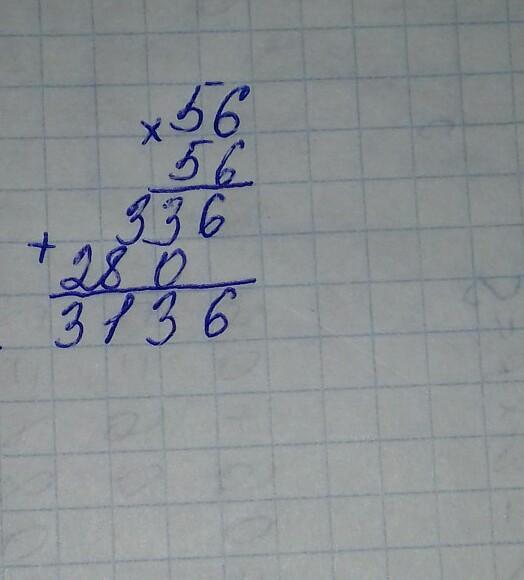 × 56
56
336
+ 280
3136